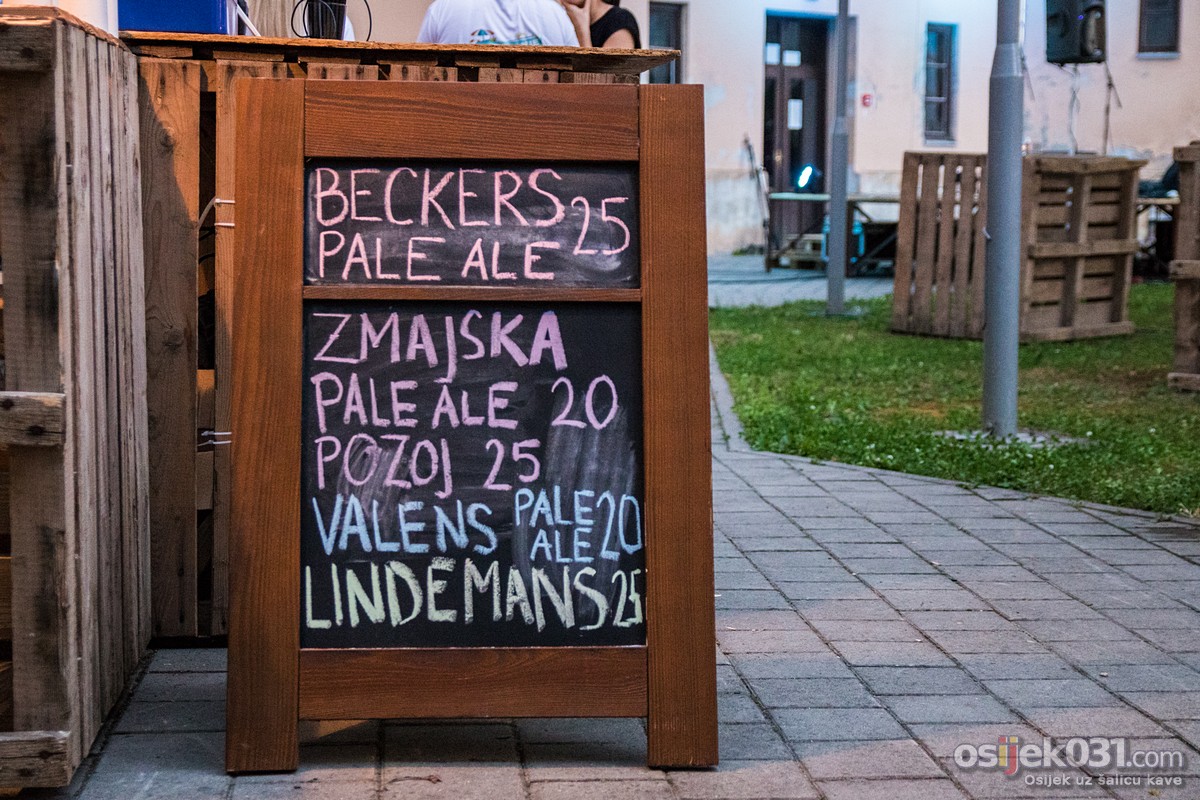 BECKERS 25
PALE ALE
ZMAJSKA
PALE ALE 20
POZOJ 25
VALENS PALE ALE 20
LINDEMANS 25
osijek031.com
Osijek uz šalicu kave